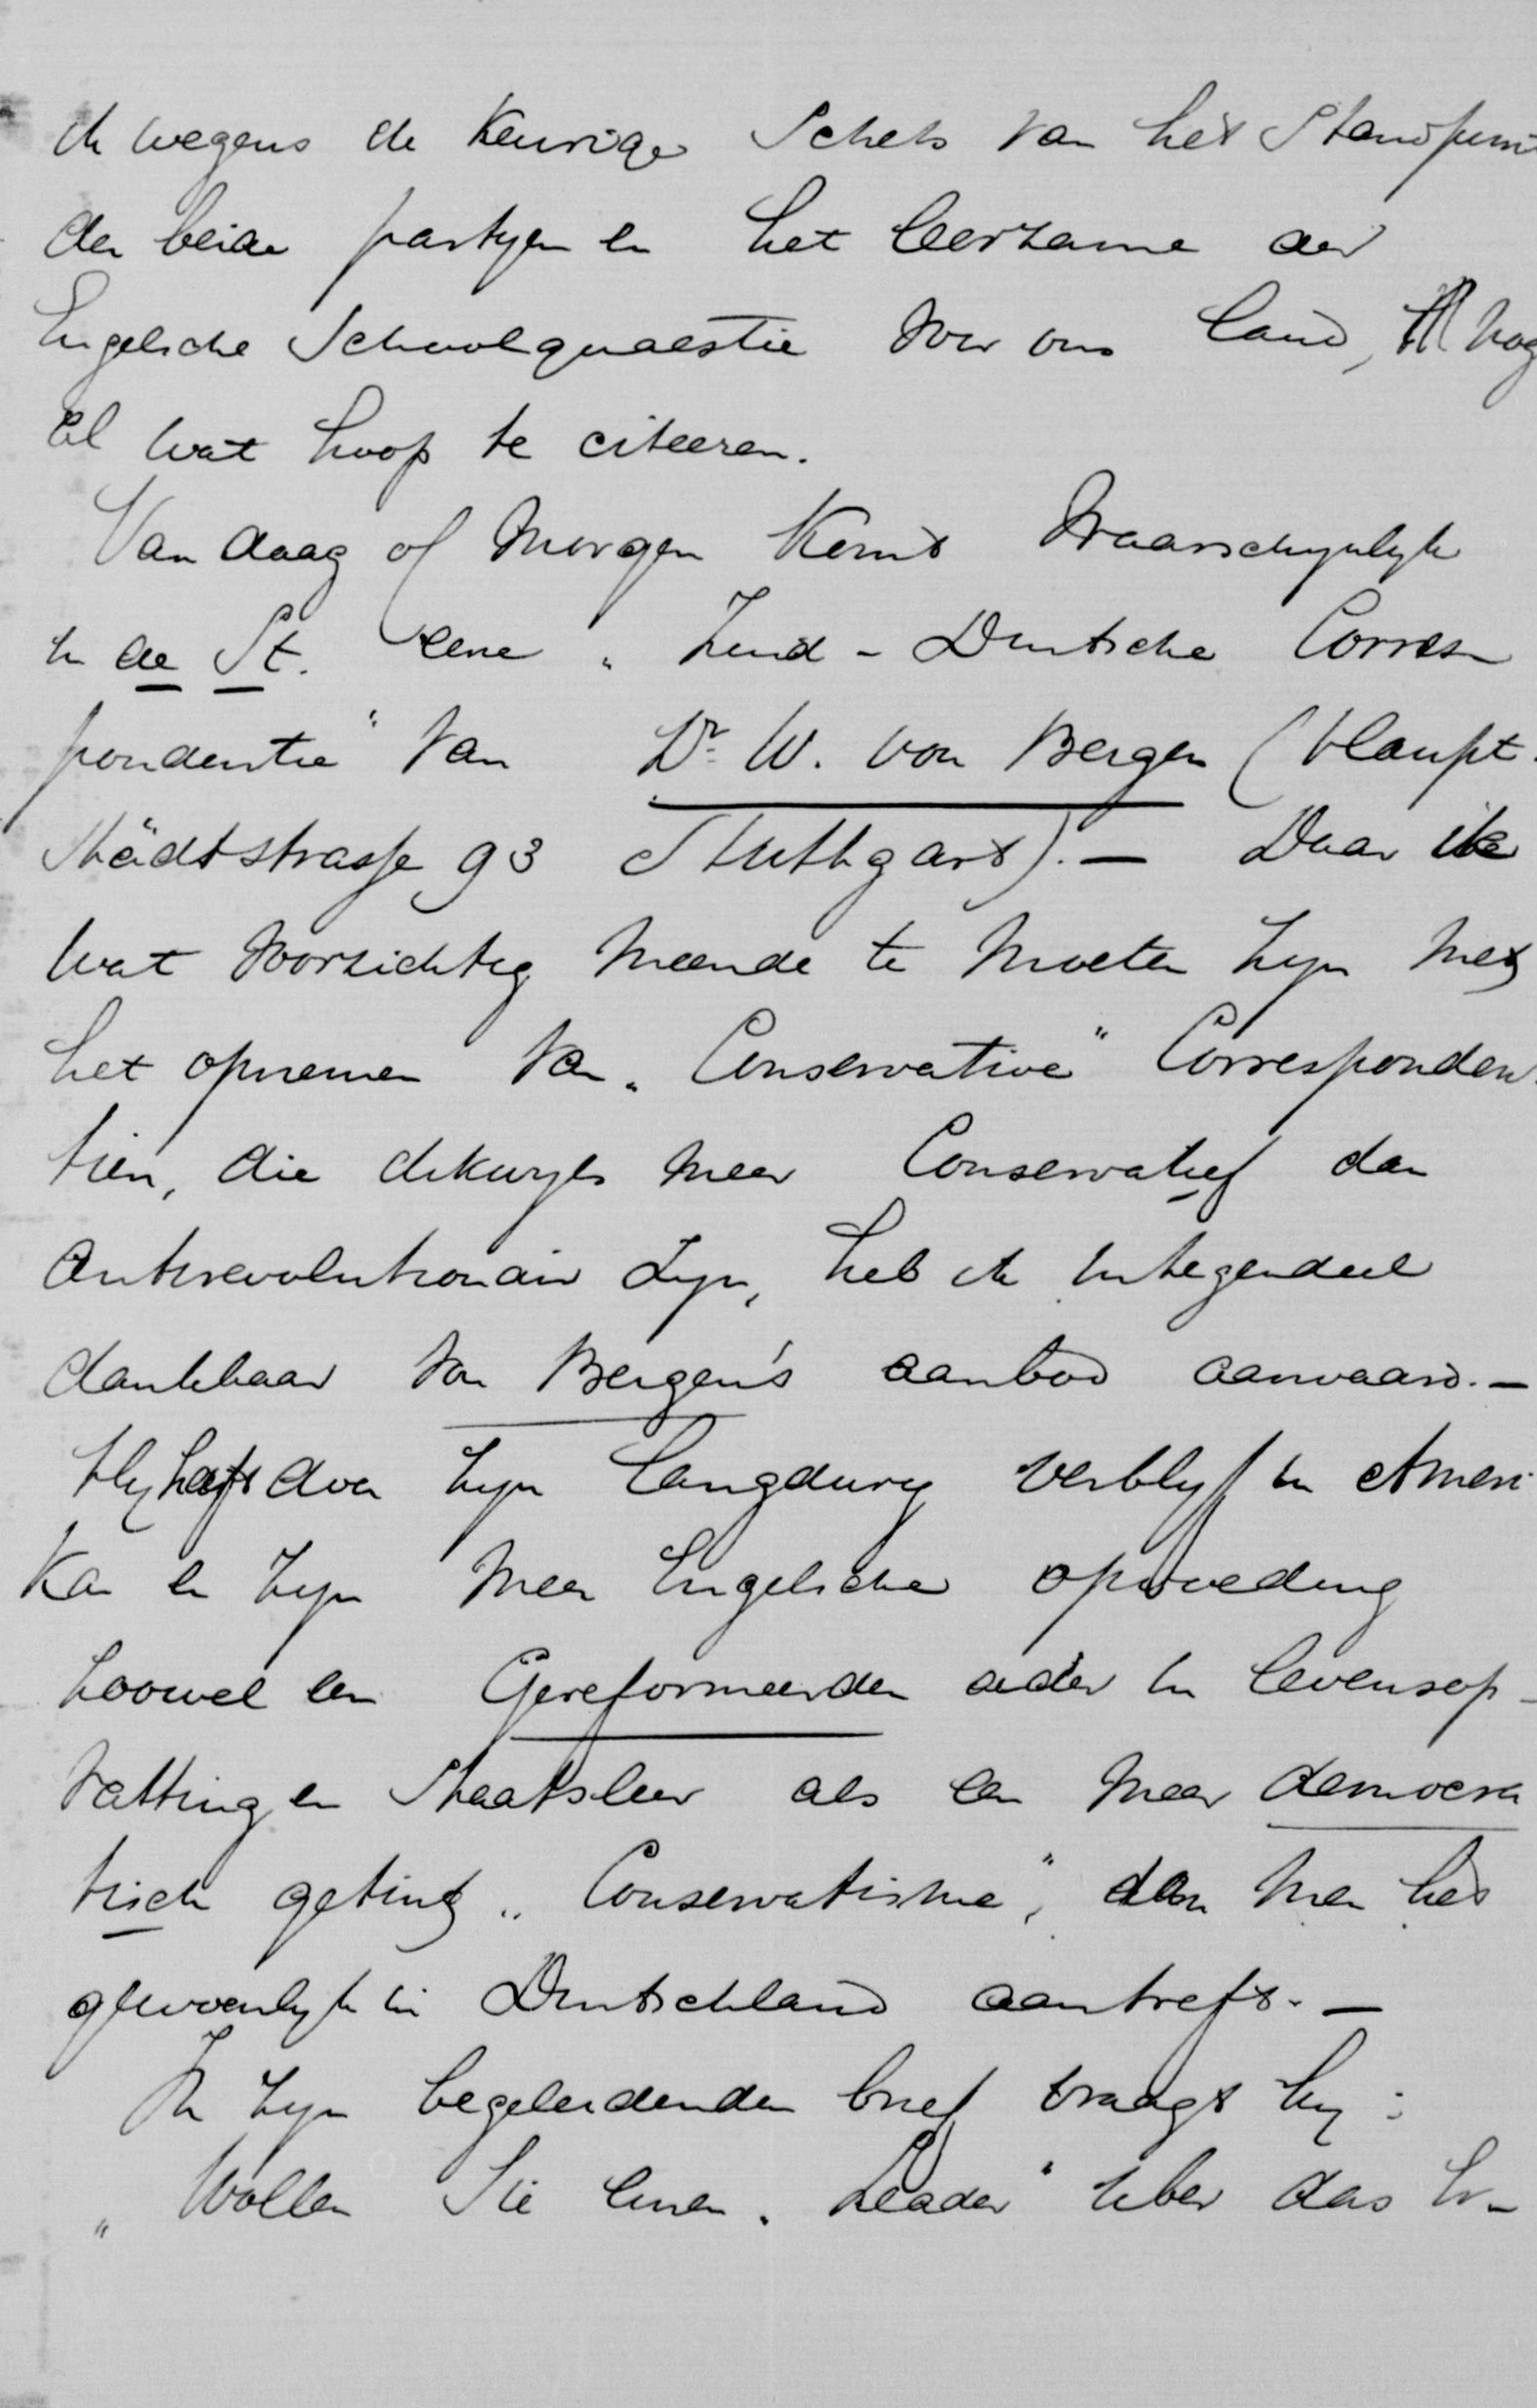 ik wegens de keurige Schets van het Standpunt
der beide partijen en het leerzame der
Engelsche Schoolquaestie voor ons land, nog
al wat hoop te citeeren.
Van daag of morgen komt waarschynlyk
in de St. eene „Zuid-Duitsche Corres-
pondentie" van Dr. W. von Bergen (Haupt-
städtstrasse 93 Stuttgart). — Daar ik
wat voorzichtig meende te moeten zyn met
het opnemen van „Conservative" Corresponden-
tien, die dikwyls meer Conservatief dan
antirevolutionair zyn, heb ik integendeel
dankbaar von Bergen's aanbod aanvaard. —
Hy heeft door zyn langdurig verblyf in Ameri-
ka en zyn meer Engelsche opvoeding
zoowel een Gereformeerden ader in levensop-
vatting en Staatsleer als een meer democra
tisch getint „Conservatisme", dan men het
gewoonlyk in Duitschland aantreft. —
In zyn begeleidenden brief vraagt hy:
„Wollen Sie einen „Leader" über das